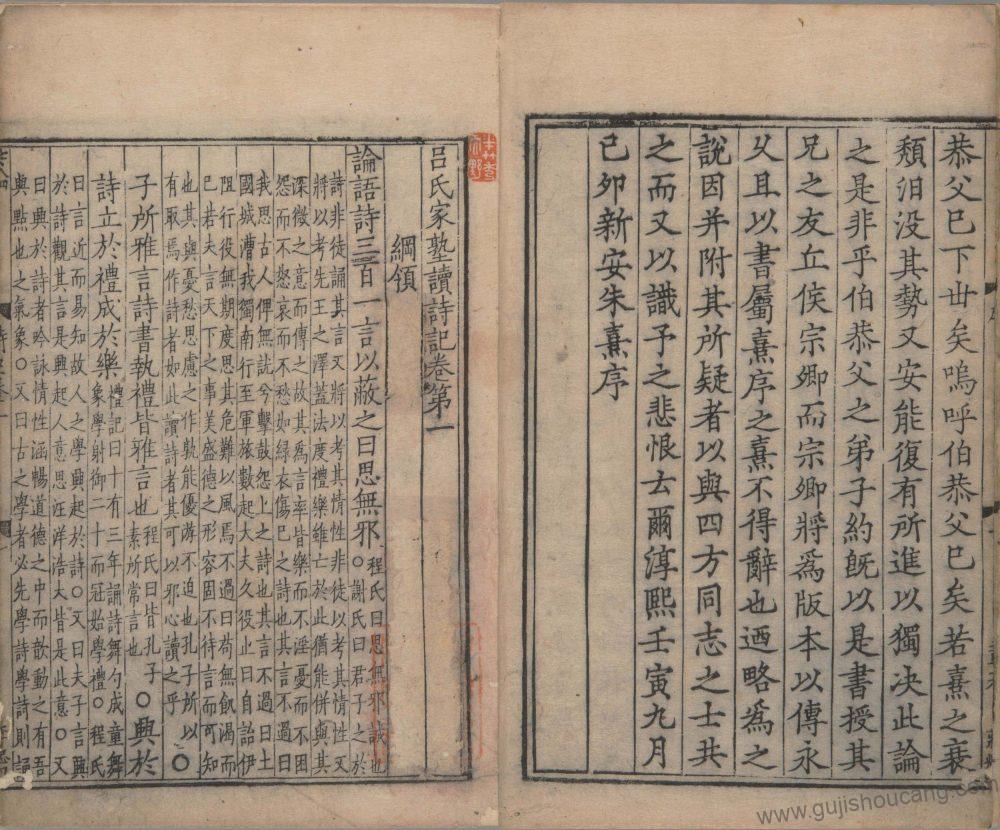 恭父已下世矣嗚呼伯恭父已矣若熹之衰
頽汨没其勢又安能復有所進以獨决此論
之是非乎伯恭父之弟子約旣以是書授其
兄之友丘侯宗卿而宗卿將爲版本以傳永
乆且以書屬熹序之熹不得辭也迺略爲之
說因并附其所疑者以與四方同志之士共
之而又以識予之悲恨云爾淳熙壬寅九月
已夘新安朱熹序
吕氏家塾讀詩記卷第一
綱領
論語詩三百一言以蔽之曰思無邪程氏曰思無邪誠也
○謝氏曰君子之於
詩非徒誦其言又將以考其情性非徒以考其情性又
將以考先王之澤蓋法度禮樂雖亡於此猶能併與其
深微之意而傳之故其爲言率皆樂而不淫憂而不困
怨而不怒哀而不愁如緑衣傷已之詩也其言不過曰
我思古人俾無訧兮擊鼓怨上之詩也其言不過曰土
國城漕我獨南行至軍旅數起大夫久役止曰自詒伊
阻行役無期度思其危難以風焉不過曰苟無飢渴而
已若夫言天下之事美盛德之形容固不待言而可知
也其與憂愁思慮之作孰能優游不迫也孔子所以
有取焉作詩者如此讀詩者其可以邪心讀之乎○
子所雅言詩書執禮皆雅言也程氏曰皆孔子
素所常言也○興於
詩立於禮成於樂禮記曰十有三年誦詩舞勺成童舞
象學射御二十而冠始學禮○程氏
曰言近而易知故人之學興起於詩○又曰夫子言興
於詩觀其言是興起人意思汪洋浩大皆是此意○又
曰興於詩者吟詠情性涵暢道德之中而歆動之有吾
與點也之氣象○又曰古之學者必先學詩學詩則誦
www.gujishoucang.com